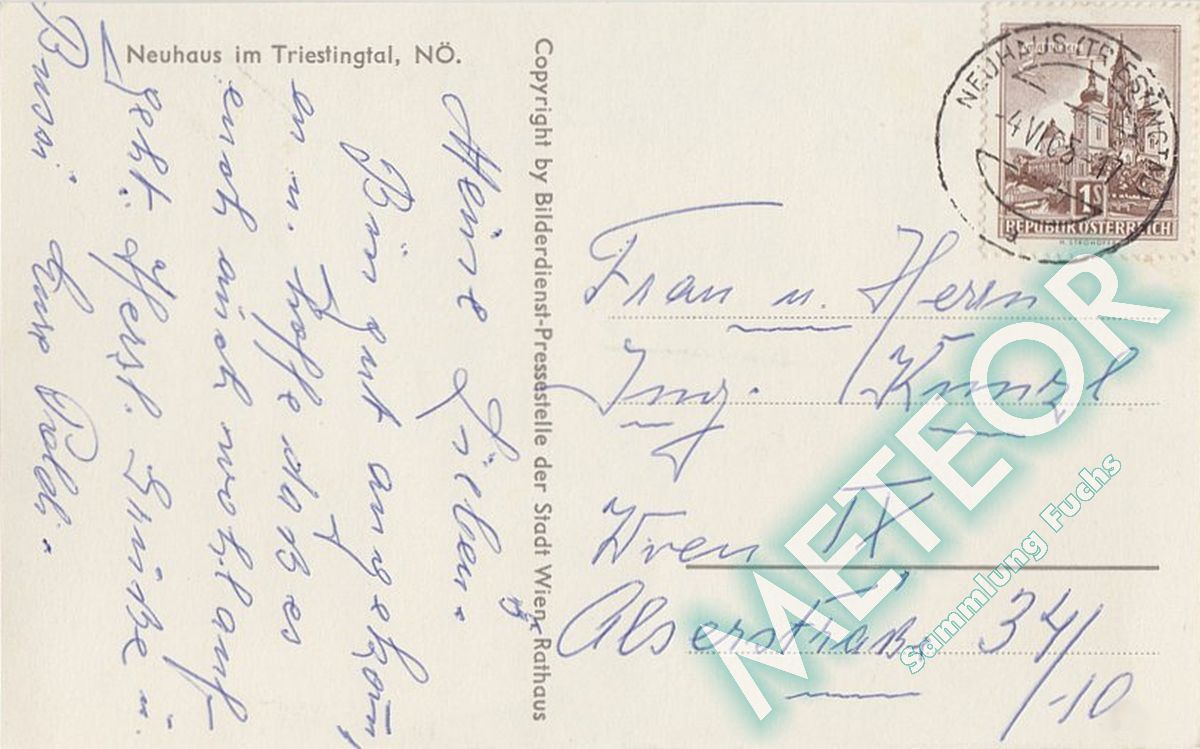 Neuhaus im Triestingtal, NÖ.
Meine Lieben.
Bin gut angekom
en u. hoffe daß es
euch auch wohlauf
geht. Herzl. Grüße u.
Bussi Eure Poldi.
Copyright by Bilderdienst-Pressestelle der Stadt Wien, Rathaus
NEUHAUS (TRIESTINGTAL)
-4.VI.65-17
a
1S
REPUBLIK ÖSTERREICH
H. STROHOFER
Frau u. Herrn
Ing. Kunzl
Wien IX
Alserstraße 34/
10
METEOR
Sammlung Fuchs